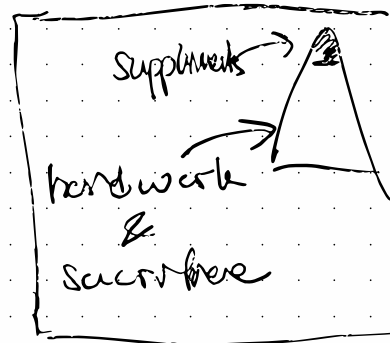 supplements
hard work
&
sacrifice